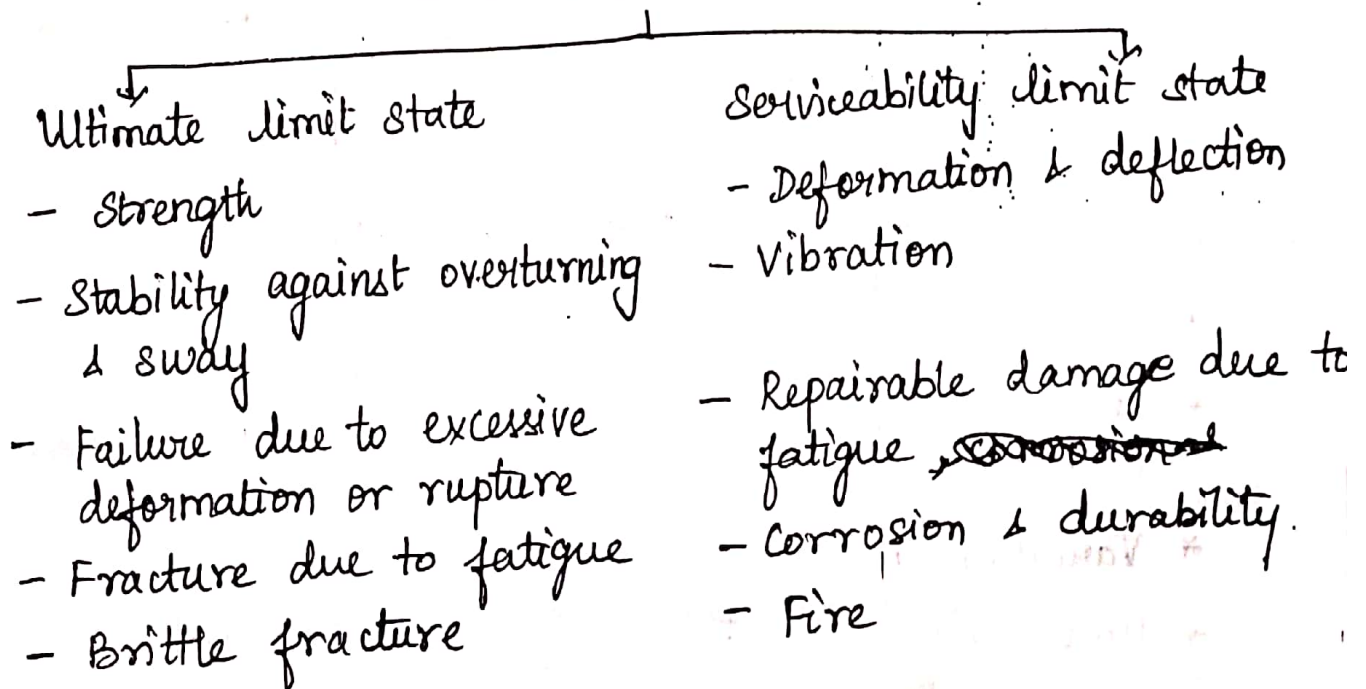 Ultimate limit state
- Strength
- Stability against overturning
& sway
- Failure due to excessive
deformation or rupture
- Fracture due to fatigue
- Brittle fracture
Serviceability limit state
- Deformation & deflection
- Vibration
- Repairable damage due to
fatigue
- Corrosion & durability.
- Fire